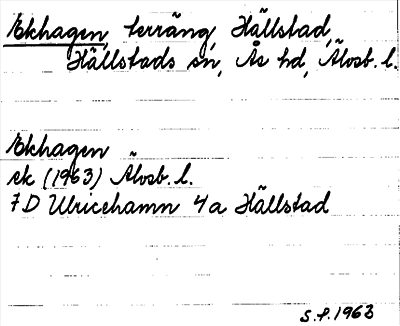 Ekhagen, terräng, Hällstad,
Hällstads sn, Ås hd, Älvsb. l.
Ekhagen
ek (1963) Älvsb. l.
7D Ulricehamn 4a Hällstad
S.P. 1963